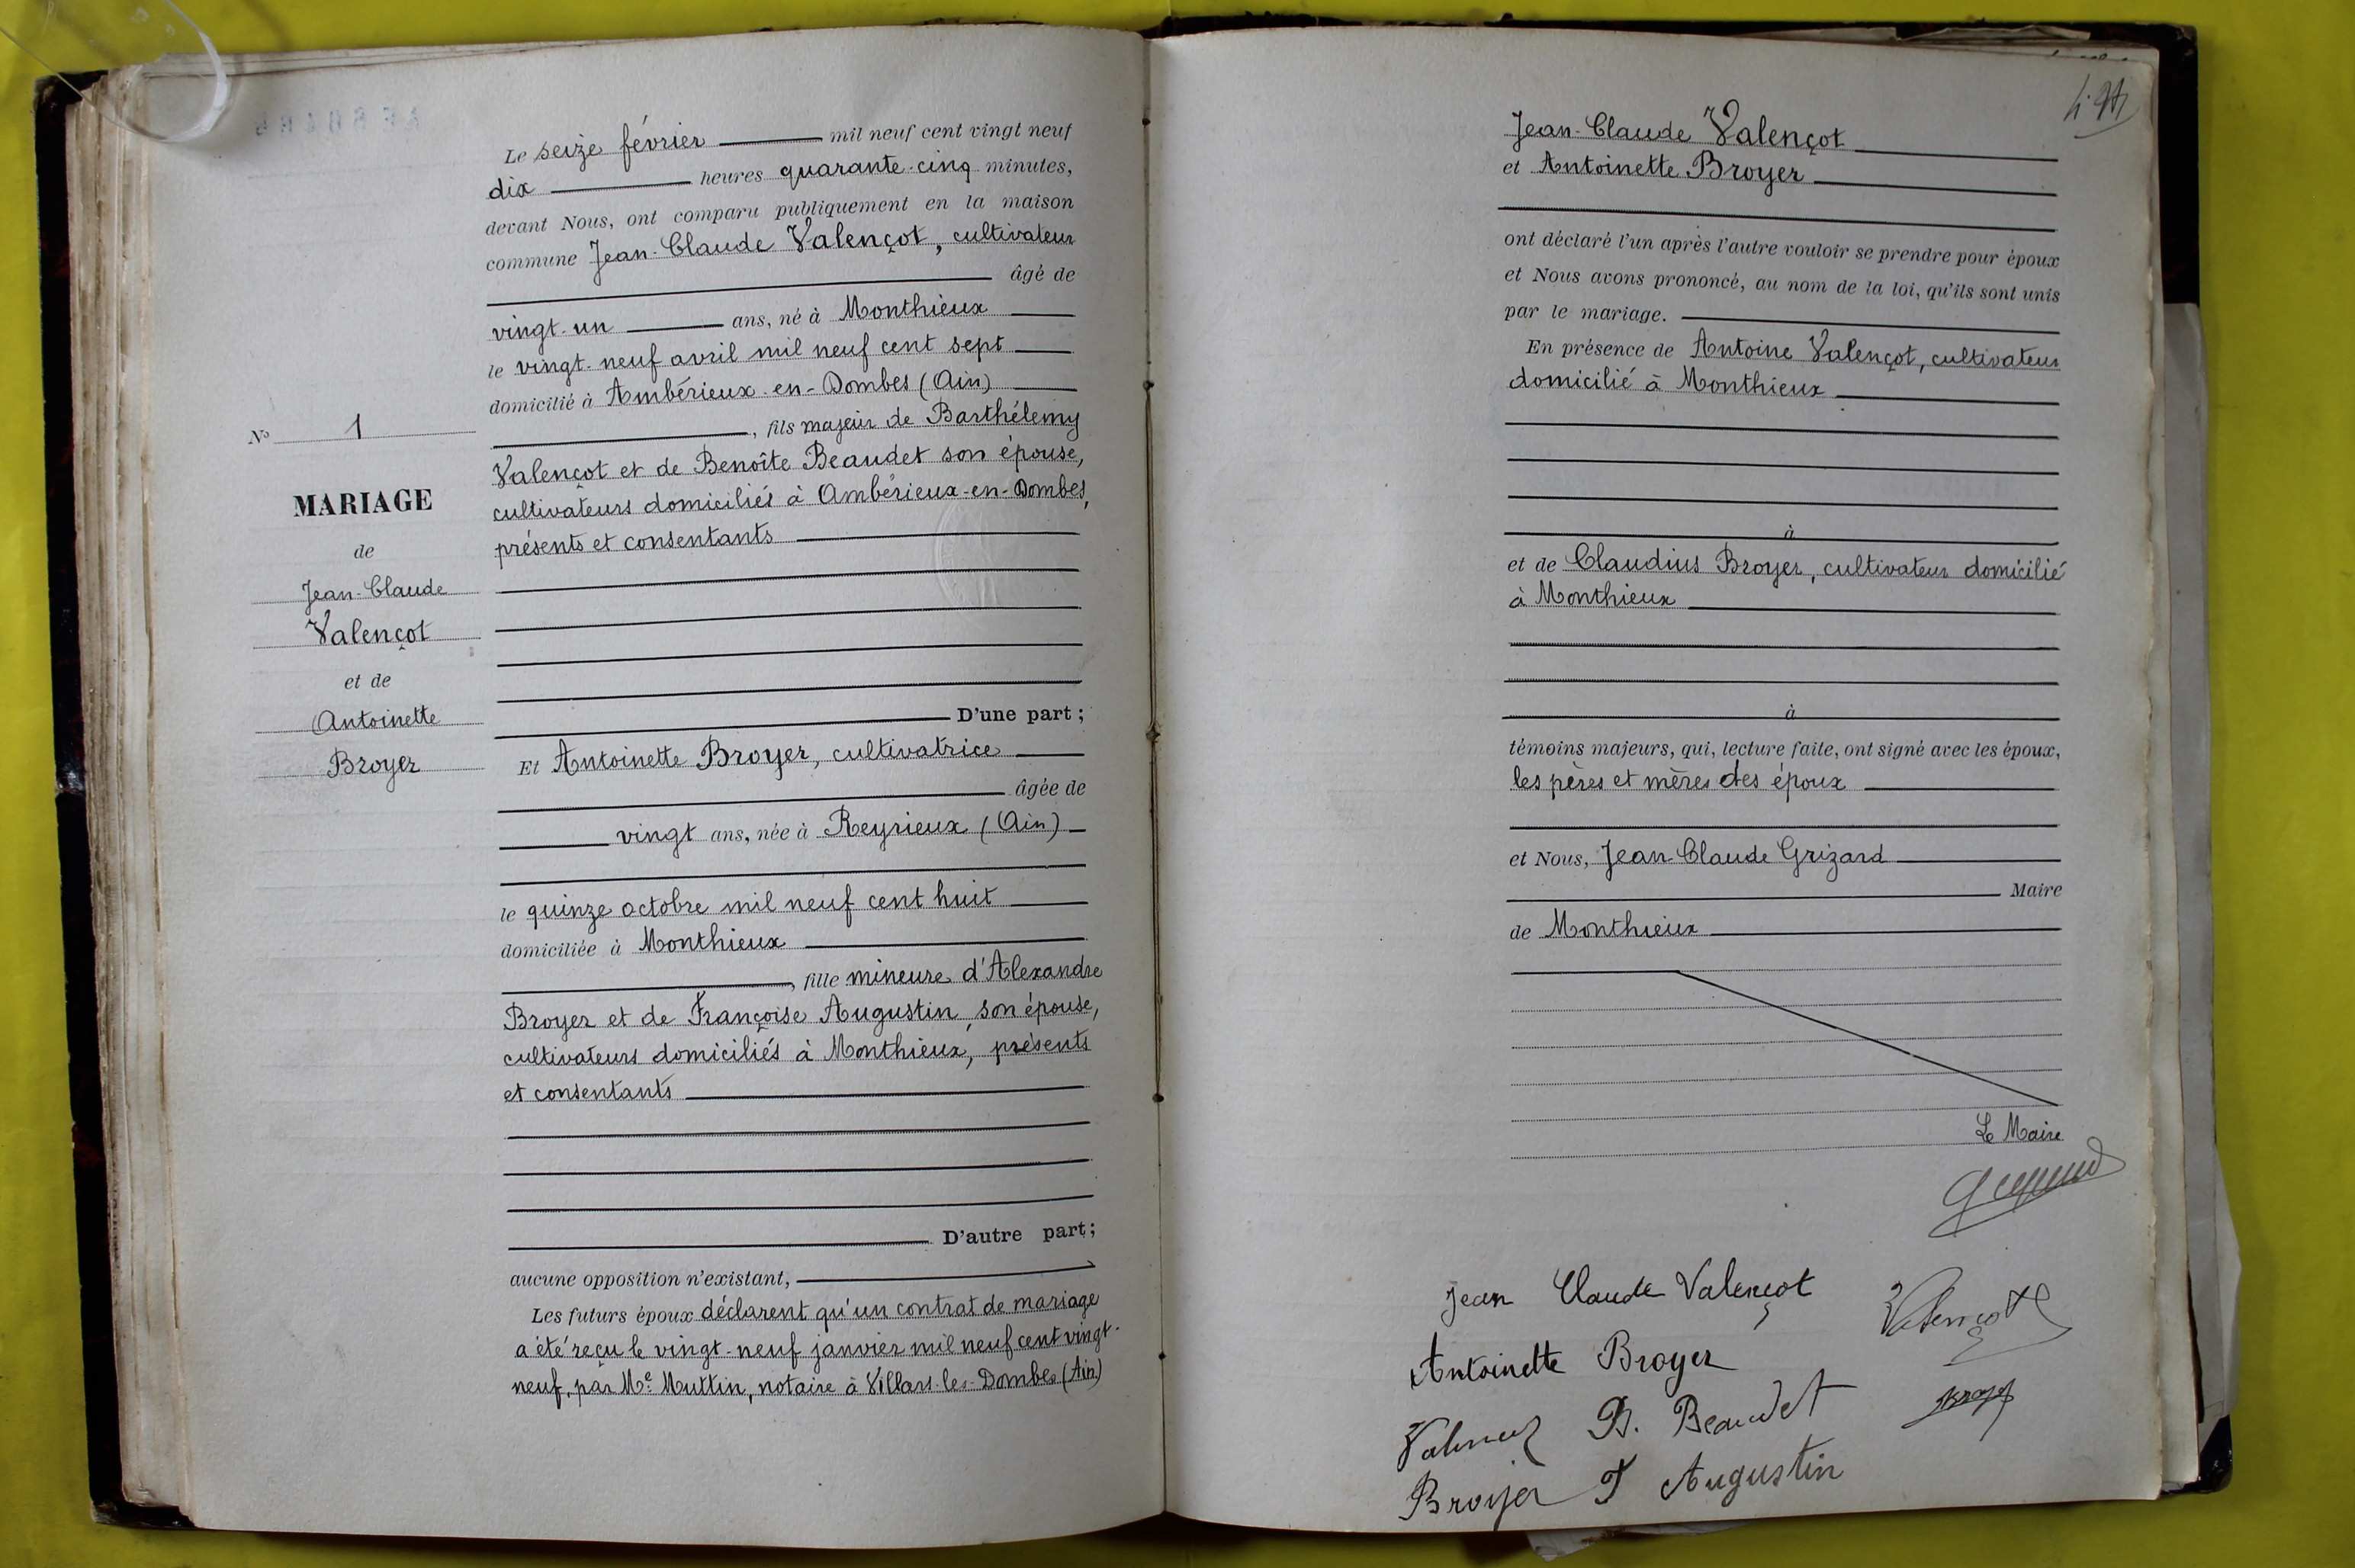 Le seize février mil neuf cent vingt neuf
dix heures quarante-cinq minutes,
devant Nous, ont comparu publiquement en la maison
commune Jean-Claude Valençot, cultivateur
âgé de
vingt-un ans, né à Monthieux
le vingt-neuf avril mil neuf cent sept
domicilié à Ambérieux-en-Dombes (Ain)
, fils majeur de Barthélemy
Valençot et de Benoîte Beaudet son épouse,
cultivateurs domiciliés à Ambérieux-en-Dombes,
présents et consentants
D'une part;
Et Antoinette Broyer, cultivatrice
âgée de
vingt ans, née à Reyrieux (Ain)
le quinze octobre mil neuf cent huit
domiciliée à Monthieux
, fille mineure d'Alexandre
Broyer et de Françoise Augustin, son épouse,
cultivateurs domiciliés à Monthieux, présents
et consentants
D'autre part;
aucune opposition n'existant,
Les futurs époux déclarent qu'un contrat de mariage
a été reçu le vingt-neuf janvier mil neuf cent vingt-
neuf, par Me Muttin, notaire à Villars-les-Dombes (Ain)
No 1
MARIAGE
de
Jean-Claude
Valençot
et de
Antoinette
Broyer
Jean-Claude Valençot
et Antoinette Broyer
ont déclaré l'un après l'autre vouloir se prendre pour époux
et Nous avons prononcé, au nom de la loi, qu'ils sont unis
par le mariage.
En présence de Antoine Valençot, cultivateur
domicilié à Monthieux
à
et de Claudius Broyer, cultivateur domicilié
à Monthieux
à
témoins majeurs, qui, lecture faite, ont signé avec les époux,
les pères et mères des époux
et Nous, Jean-Claude Grizard
Maire
de Monthieux
Le Maire
Jean Claude Valençot
Valençot
Antoinette Broyer
Broyer
B. Beaudet
Broyer F Augustin